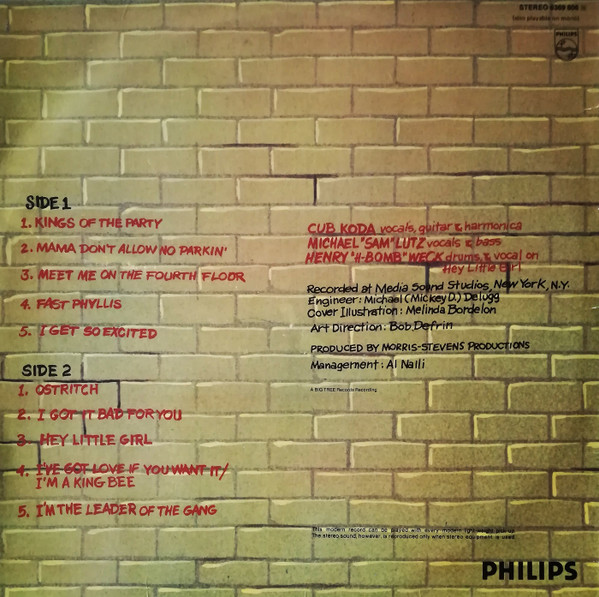 STEREO 6369 806
(also playable on mono)
PHILIPS
SIDE 1
1. KINGS OF THE PARTY
2. MAMA DON'T ALLOW NO PARKIN'
3. MEET ME ON THE FOURTH FLOOR
4. FAST PHYLLIS
5. I GET SO EXCITED
SIDE 2
1. OSTRITCH
2. I GOT IT BAD FOR YOU
3. HEY LITTLE GIRL
4. I'VE GOT LOVE IF YOU WANT IT/
I'M A KING BEE
5. I'M THE LEADER OF THE GANG
CUB KODA vocals, guitar & harmonica
MICHAEL "SAM" LUTZ vocals & bass
HENRY "H-BOMB" WECK drums, & vocal on
Hey Little Girl
Recorded at Media Sound Studios, New York, N.Y.
Engineer: Michael (Mickey D.) Delugg
Cover Illustration: Melinda Bordelon
Art Direction: Bob Defrin
PRODUCED BY MORRIS-STEVENS PRODUCTIONS
Management: Al Nalli
A BIG TREE Records Recording
This modern record can be played with every modern light-weight pick-up.
The stereo sound, however, is reproduced only when stereo equipment is used.
PHILIPS